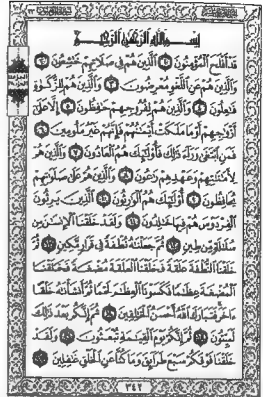 بِسْمِ ٱللَّهِ ٱلرَّحْمَٰنِ ٱلرَّحِيمِ
قَدْ أَفْلَحَ ٱلْمُؤْمِنُونَ ١ ٱلَّذِينَ هُمْ فِي صَلَاتِهِمْ خَٰشِعُونَ ٢
وَٱلَّذِينَ هُمْ عَنِ ٱللَّغْوِ مُعْرِضُونَ ٣ وَٱلَّذِينَ هُمْ لِلزَّكَوٰةِ
فَٰعِلُونَ ٤ وَٱلَّذِينَ هُمْ لِفُرُوجِهِمْ حَٰفِظُونَ ٥ إِلَّا عَلَىٰٓ
أَزْوَٰجِهِمْ أَوْ مَا مَلَكَتْ أَيْمَٰنُهُمْ فَإِنَّهُمْ غَيْرُ مَلُومِينَ ٦
فَمَنِ ٱبْتَغَىٰ وَرَآءَ ذَٰلِكَ فَأُو۟لَٰٓئِكَ هُمُ ٱلْعَادُونَ ٧ وَٱلَّذِينَ هُمْ
لِأَمَٰنَٰتِهِمْ وَعَهْدِهِمْ رَٰعُونَ ٨ وَٱلَّذِينَ هُمْ عَلَىٰ صَلَوَٰتِهِمْ
يُحَافِظُونَ ٩ أُو۟لَٰٓئِكَ هُمُ ٱلْوَٰرِثُونَ ١٠ ٱلَّذِينَ يَرِثُونَ
ٱلْفِرْدَوْسَ هُمْ فِيهَا خَٰلِدُونَ ١١ وَلَقَدْ خَلَقْنَا ٱلْإِنسَٰنَ مِن
سُلَٰلَةٍ مِّن طِينٍ ١٢ ثُمَّ جَعَلْنَٰهُ نُطْفَةً فِي قَرَارٍ مَّكِينٍ ١٣ ثُمَّ
خَلَقْنَا ٱلنُّطْفَةَ عَلَقَةً فَخَلَقْنَا ٱلْعَلَقَةَ مُضْغَةً فَخَلَقْنَا
ٱلْمُضْغَةَ عِظَٰمًا فَكَسَوْنَا ٱلْعِظَٰمَ لَحْمًا ثُمَّ أَنشَأْنَٰهُ خَلْقًا
ءَاخَرَ فَتَبَارَكَ ٱللَّهُ أَحْسَنُ ٱلْخَٰلِقِينَ ١٤ ثُمَّ إِنَّكُم بَعْدَ ذَٰلِكَ
لَمَيِّتُونَ ١٥ ثُمَّ إِنَّكُمْ يَوْمَ ٱلْقِيَٰمَةِ تُبْعَثُونَ ١٦ وَلَقَدْ
خَلَقْنَا فَوْقَكُمْ سَبْعَ طَرَآئِقَ وَمَا كُنَّا عَنِ ٱلْخَلْقِ غَٰفِلِينَ ١٧
٣٤٢